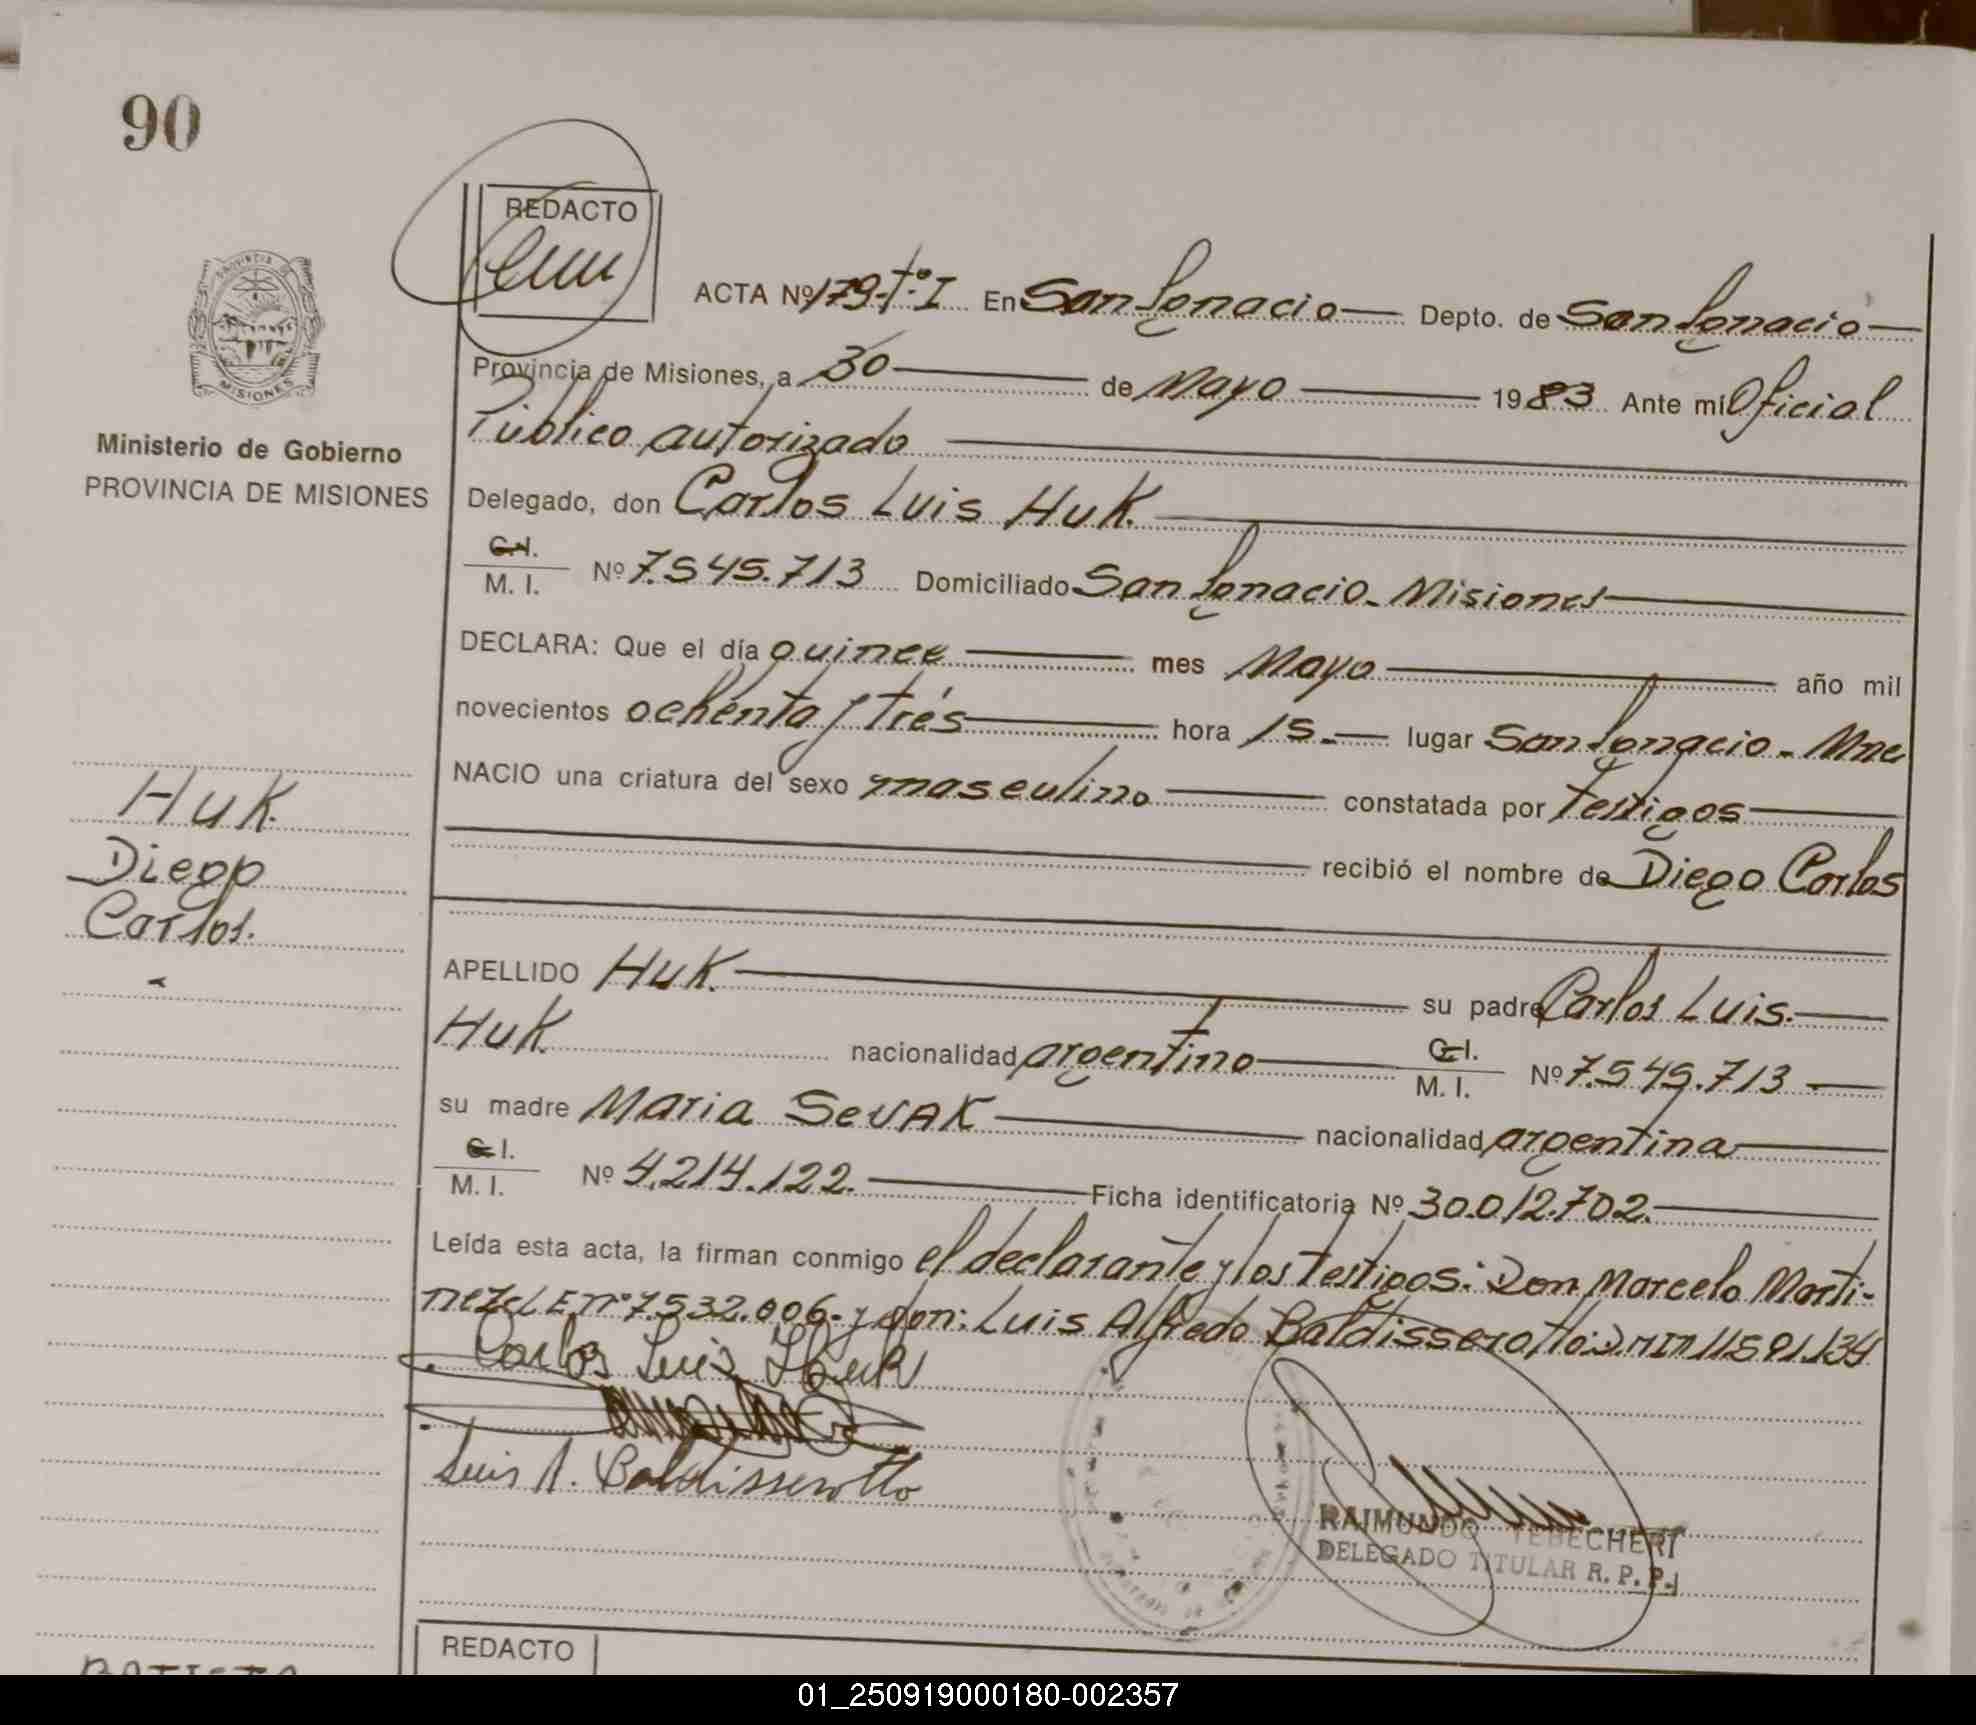 90
REDACTO
ACTA Nº 179-tº I En San Ignacio Depto. de San Ignacio
Provincia de Misiones, a 30 de Mayo 1983 Ante mí Oficial
Público autorizado
Delegado, don Carlos Luis Huk.
C.I. M. I. Nº 7.545.713 Domiciliado San Ignacio - Misiones
DECLARA: Que el día quince mes Mayo año mil
novecientos ochenta y trés hora 15.- lugar San Ignacio - Mnes
NACIO una criatura del sexo masculino constatada por testigos
recibió el nombre de Diego Carlos
APELLIDO Huk. su padre Carlos Luis.
Huk. nacionalidad argentino C.I. M. I. Nº 7.545.713
su madre Maria SevAK nacionalidad argentina
C.I. M. I. Nº 4.214.122. Ficha identificatoria Nº 30.012.702.
Leída esta acta, la firman conmigo el declarante y los testigos: Don Marcelo Marti-
nez L E nº 7.532.006.- y don: Luis Alfredo Baldisserotto: D.N.I nº 11.591.134
Carlos Luis Huk
Luis A. Baldisserotto
RAIMUNDO TEBECHERI
DELEGADO TITULAR R. P. P.
PROVINCIA DE
MISIONES
Ministerio de Gobierno
PROVINCIA DE MISIONES
Huk.
Diego
Carlos.
REDACTO
BATISTA
01_250919000180-002357